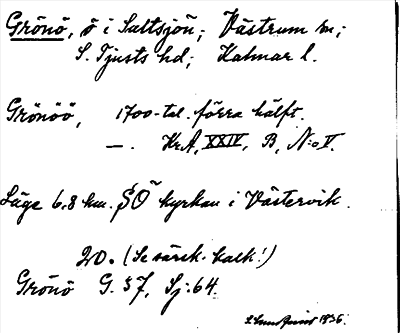 Grönö, ö i Saltsjön; Västrum sn;
S. Tjusts hd; Kalmar l.
Grönöö, 1700-tal. förra hälft.
—. KrA, XXIV, B, N:o V.
Läge 6,8 km. SO kyrkan i Västervik.
20. (Se särsk. kalk!)
Grönö G. 37, Sj: 64.
1936.